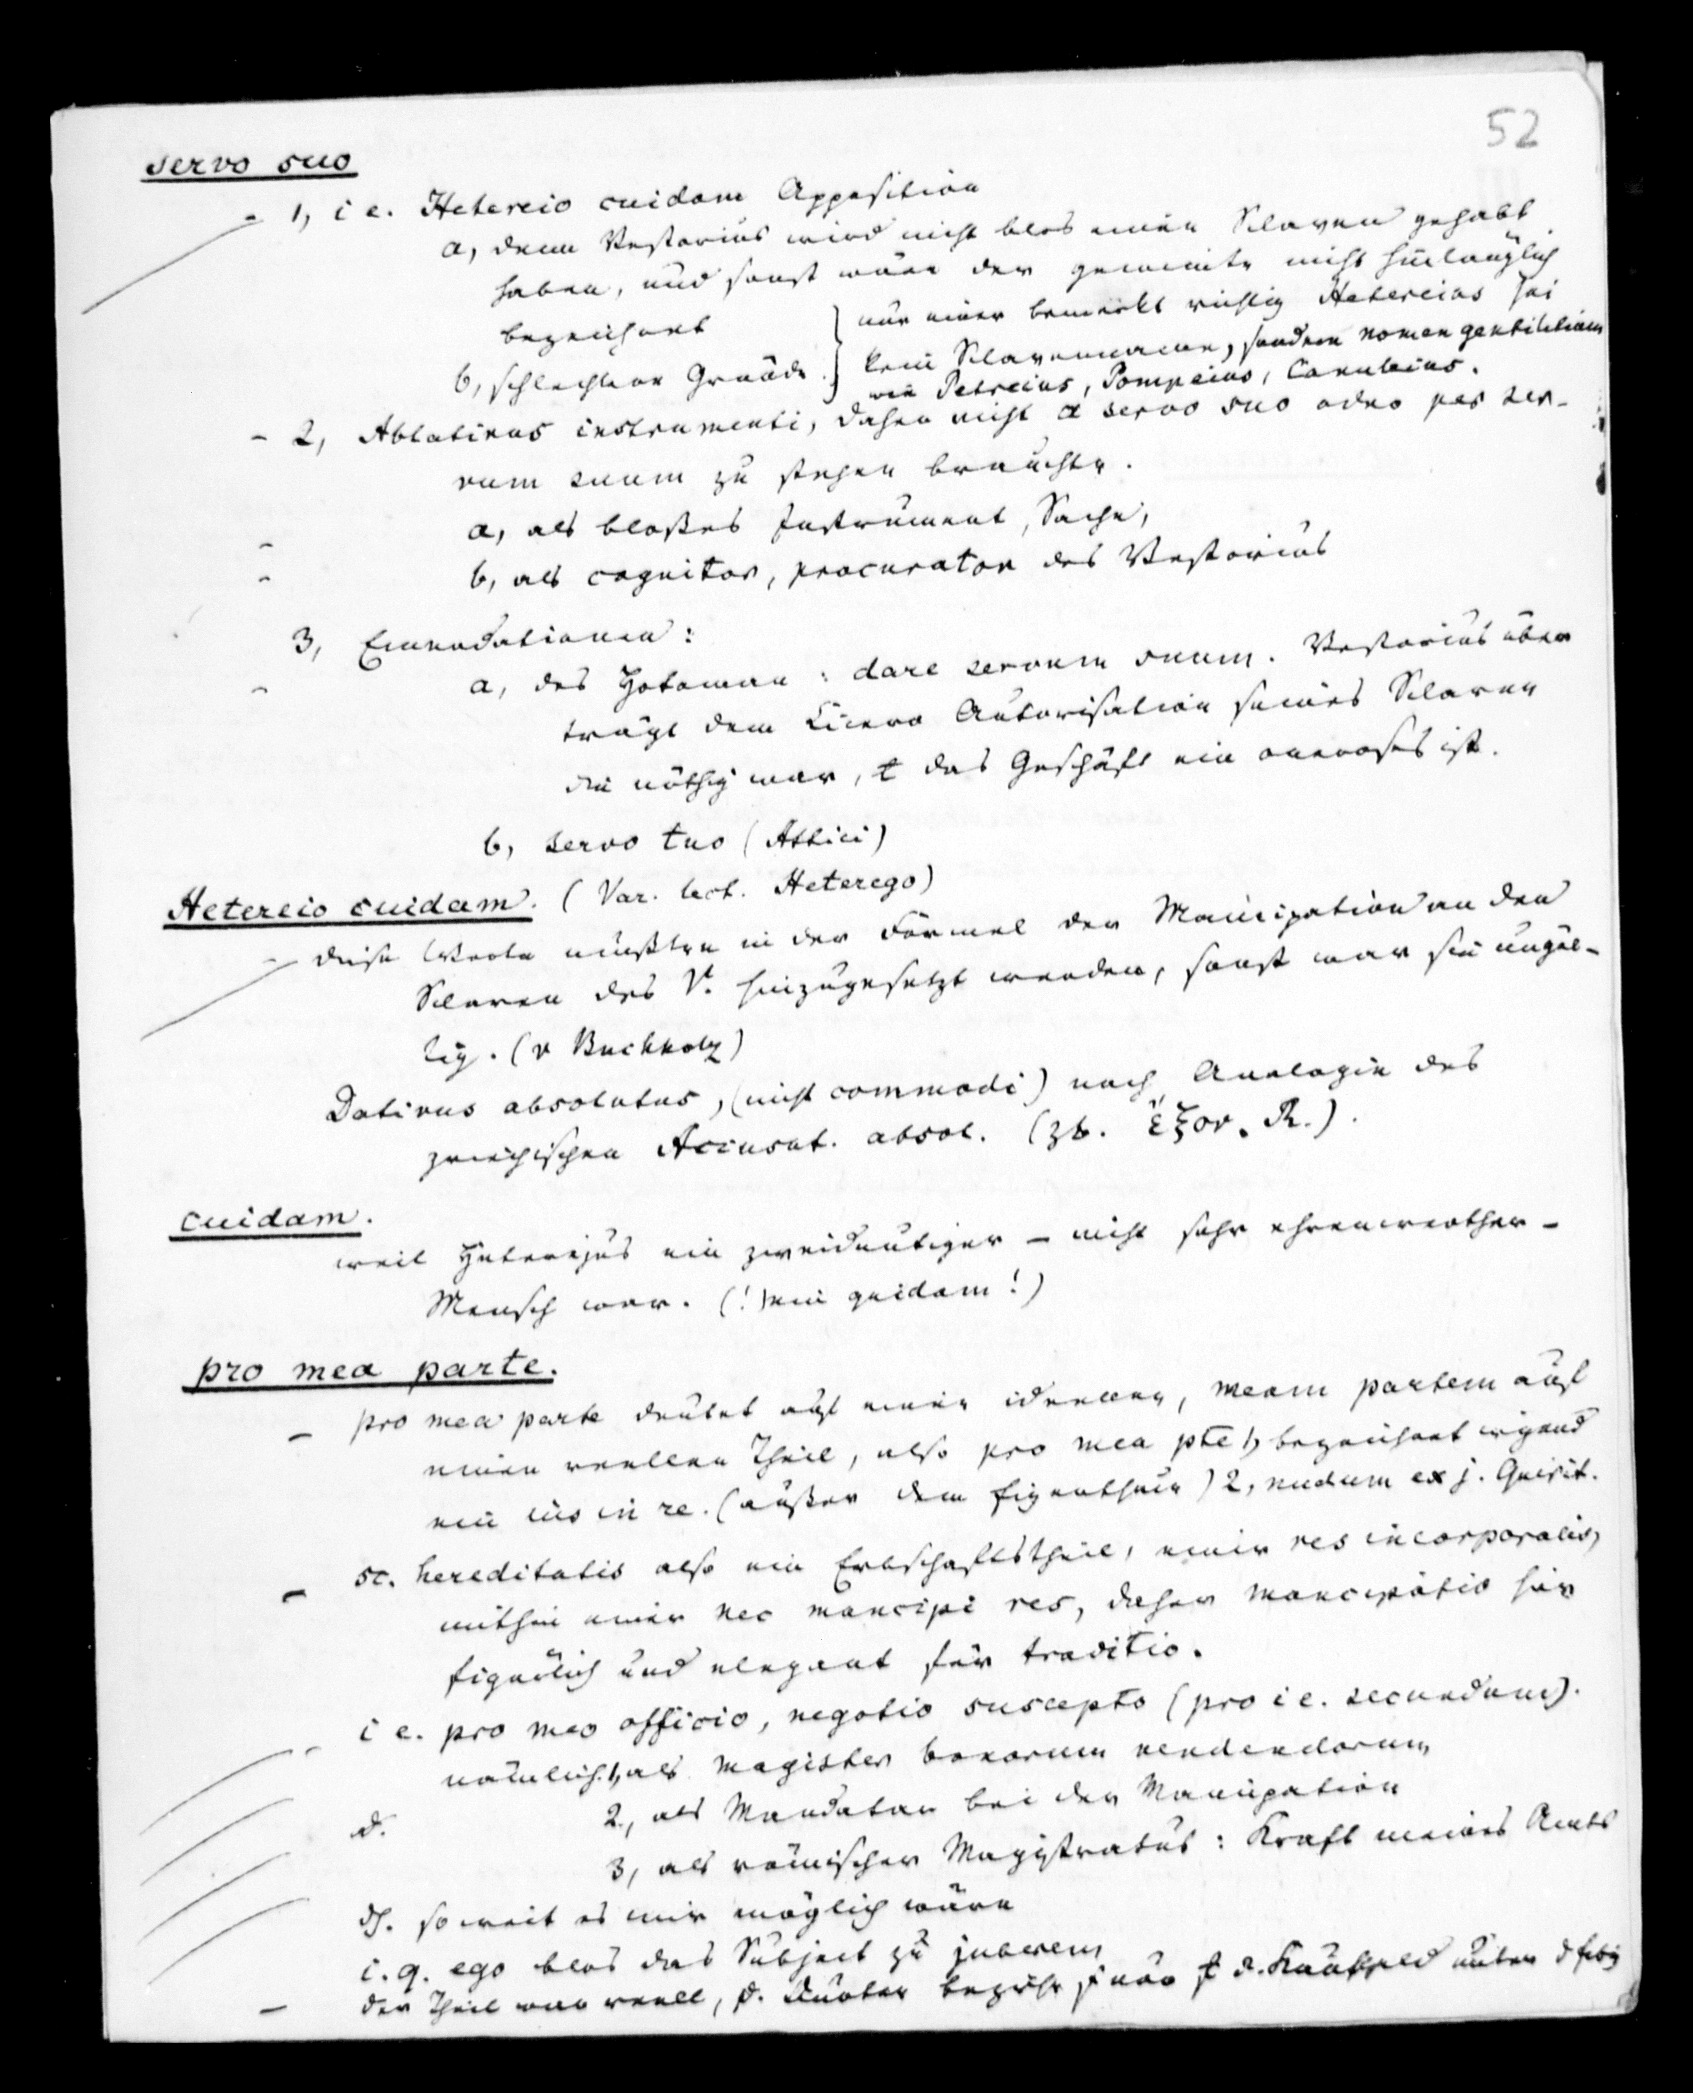 52
servo suo
- 1, i e. Hetereio cuidam Apposition
a, denn Vestorius wird nicht blos einen Sclaven gehabt
haben, und sonst wäre der gemeinte nicht hinlänglich
bezeichnet
nur einer bemerkt richtig Hetereius sei
b, schlechter Gründe.
kein Sclavenname, sondern nomen gentilitium
wie Petreius, Pompeius, Canuleius.
- 2, Ablativus instrumenti, daher nicht a servo suo oder per ser-
vum suum zu stehen brauchte.
- a, als bloßes Instrument, Sache,
- b, als cognitor, procurator des Vestorius
3, Emendationen:
- a, des Hotoman: dare servum suum. Vestorius über
trägt dem Cicero Autorisation seines Sclaven
die nöthig war, das Geschäft ein oneroses ist.
b, servo tuo (Attici)
Hetereio cuidam. (Var. lect. Heterego)
- diese Worte mußten in der Formel der Mancipation an den
Sclaven des V. hinzugesetzt werden, sonst war sie ungül-
tig. (v Buchholtz)
Dativus absolutus, (nicht commodi) nach Analogie des
griechischen Accusat. absol. (zb. ἐξον. R.).
cuidam.
weil Heterejus ein zweideutiger - nicht sehr ehrenwerther -
Mensch war. (! ein quidam!)
pro mea parte.
- pro mea parte deutet auf einen ideellen, meam partem auf
einen reellen Theil, also pro mea pte 1, bezeichnet irgend
ein ius in re. (außer dem Eigenthum) 2, nudum ex j. Quirit.
- sc. hereditatis also ein Erbschaftstheil, einer res incorporalis,
mithin einer nec mancipi res, daher mancipatio hier
figürlich und elegant für traditio.
- i e. pro meo officio, negotio suscepto (pro i e. secundum).
nämlich. 1, als magister bonorum vendendorum
d. 2, als Mandatar bei der Mancipation
3, als römischer Magistratus: Kraft meines Amts
dh. so weit es mir möglich wäre
i. q. ego blos das Subject zu juberem
- der Theil war reell,